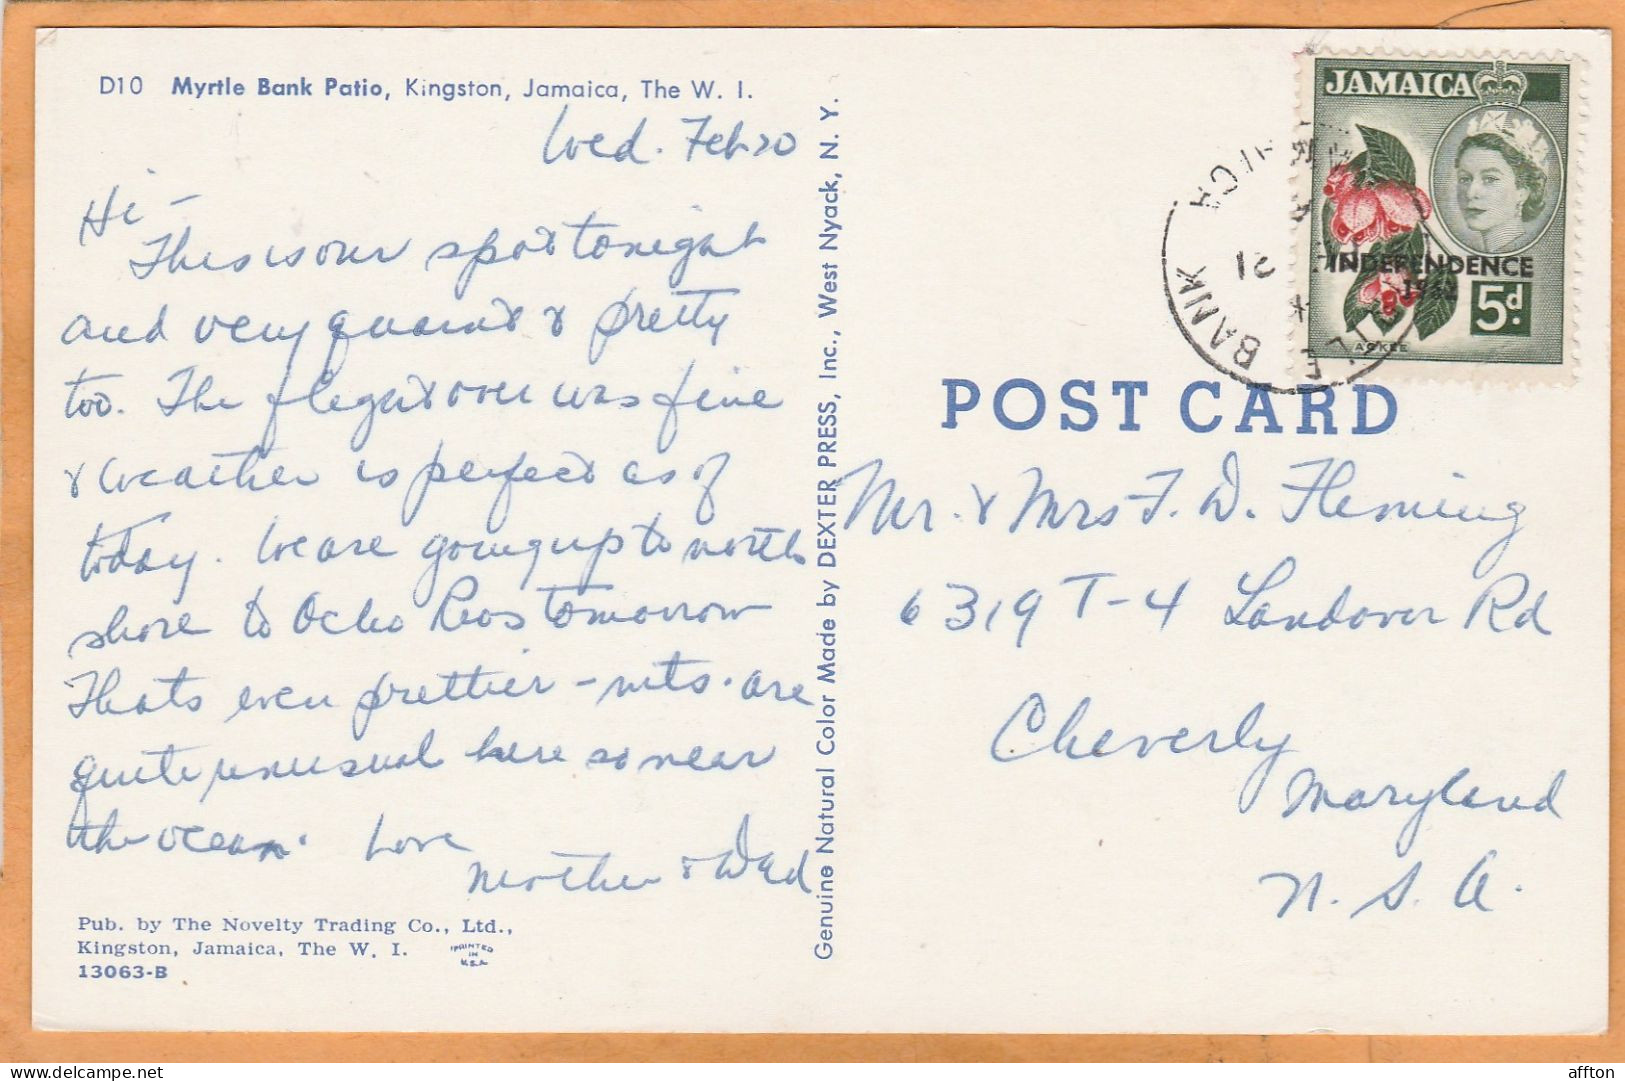 D10 Myrtle Bank Patio, Kingston, Jamaica, The W. I.
Wed. Feb 20
Hi -
This is our spot tonight
and very quaint & pretty
too. The flight over was fine
& weather is perfect as of
today. We are going up to north
shore to Ocho Rios tomorrow
Thats even prettier - nits. are
quite unusual here so near
the ocean. Love
Mother & Dad
Pub. by The Novelty Trading Co., Ltd.,
Kingston, Jamaica, The W. I.
13063-B
PRINTED
IN
U.S.A.
Genuine Natural Color Made by DEXTER PRESS, Inc., West Nyack, N. Y.
JAMAICA
INDEPENDENCE
1962
5d.
ACKEE
BANK
21
POST CARD
Mr. & Mrs F. D. Fleming
6319 T-4 Landover Rd
Cheverly
Maryland
U. S. A.
affton